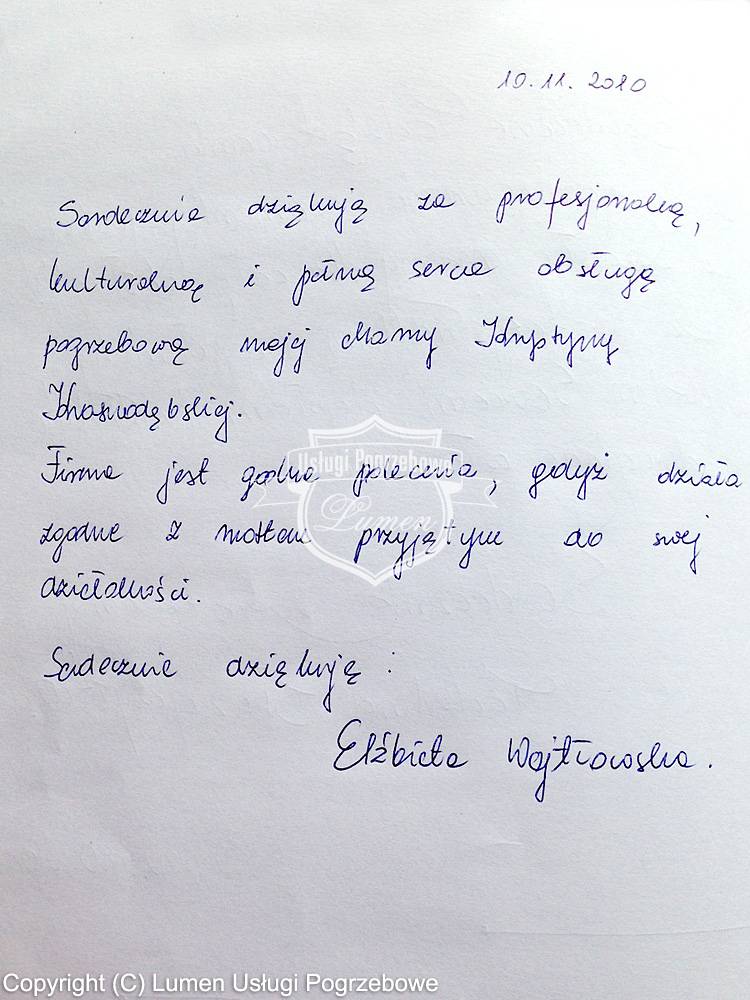 10.11.2010
Serdecznie dziękuję za profesjonalną,
kulturalną i pełną serca obsługę
pogrzebową mojej Mamy Krystyny
Firma jest godna polecenia, gdyż działa
zgodnie z mottem przyjętym do swej
działalności.
Serdecznie dziękuję:
Elżbieta
Usługi Pogrzebowe
Lumen
Copyright (C) Lumen Usługi Pogrzebowe